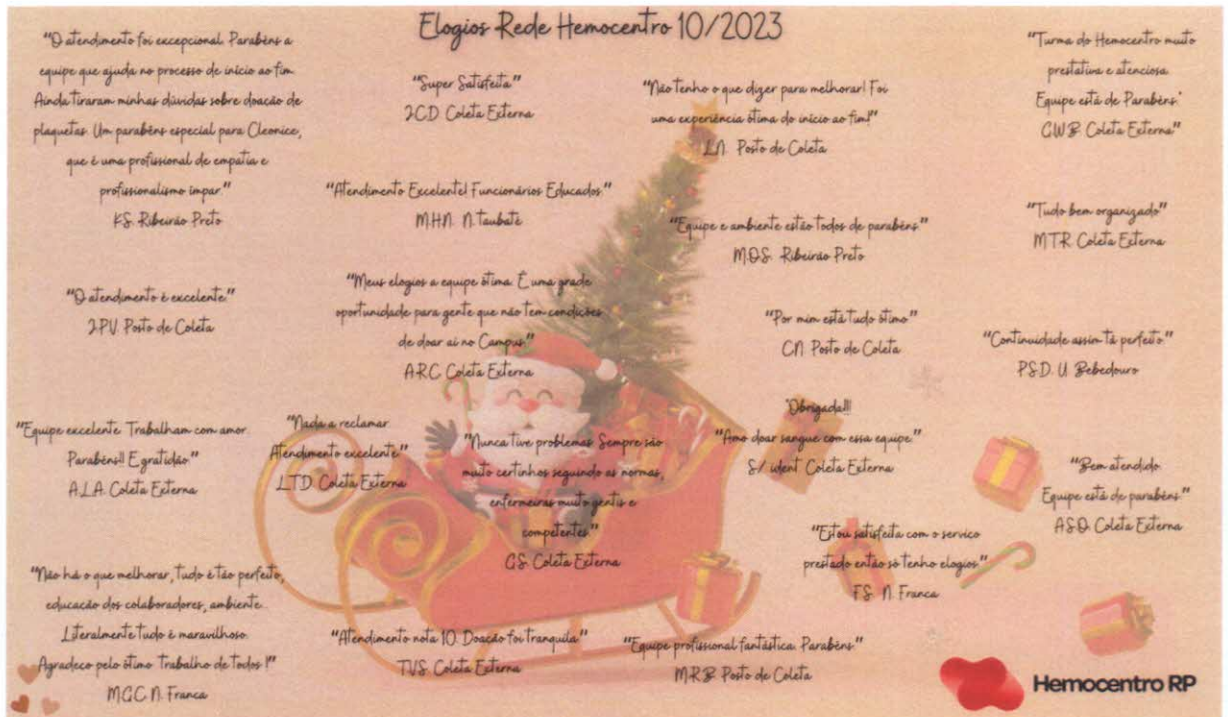 Elogios Rede Hemocentro 10/2023
"O atendimento foi excepcional. Parabéns a
equipe que ajuda no processo de início ao fim.
Ainda tiraram minhas dúvidas sobre doação de
plaquetas. Um parabéns especial para Cleonice,
que é uma profissional de empatia e
profissionalismo impar."
K.S. Ribeirão Preto
"O atendimento é excelente."
J.P.V. Posto de Coleta
"Equipe excelente. Trabalham com amor.
Parabéns!! E gratidão."
A.L.A. Coleta Externa
"Não há o que melhorar, tudo é tão perfeito,
educacão dos colaboradores, ambiente..
Literalmente tudo é maravilhoso.
Agradeco pelo ótimo Trabalho de todos !"
M.G.C. N. Franca
"Super Satisfeita"
J.C.D. Coleta Externa
"Atendimento Excelente! Funcionários Educados."
M.H.N. N. Taubaté
"Meus elogios a equipe ótima. É uma grade
oportunidade para gente que não tem condições
de doar ai no Campus."
A.R.C. Coleta Externa
"Nada a reclamar.
Atendimento excelente."
L.T.D. Coleta Externa
"Nunca tive problemas. Sempre são
muito certinhos seguindo as normas,
enfermeiras muito gentis e
competentes."
G.S. Coleta Externa
"Atendimento nota 10. Doação foi tranquila"
T.V.S. Coleta Externa
"Não tenho o que dizer para melhorar! Foi
uma experiência ótima do início ao fim!"
L.N. Posto de Coleta
"Equipe e ambiente estão todos de parabéns."
M.O.S. Ribeirão Preto
"Por mim está tudo ótimo"
C.N. Posto de Coleta
"Obrigada!!!
"Amo doar sangue com essa equipe."
S/ ident. Coleta Externa
"Estou satisfeita com o servico
prestado então só tenho elogios."
F.S. N. Franca
"Equipe profissional fantástica. Parabéns."
M.R.B. Posto de Coleta
"Turma do Hemocentro muito
prestativa e atenciosa.
Equipe está de Parabéns."
G.W.B. Coleta Externa"
"Tudo bem organizado"
M.T.R. Coleta Externa
"Continuidade assim tá perfeito."
P.S.D. U. Bebedouro
"Bem atendido.
Equipe está de parabéns."
A.S.O. Coleta Externa
Hemocentro RP